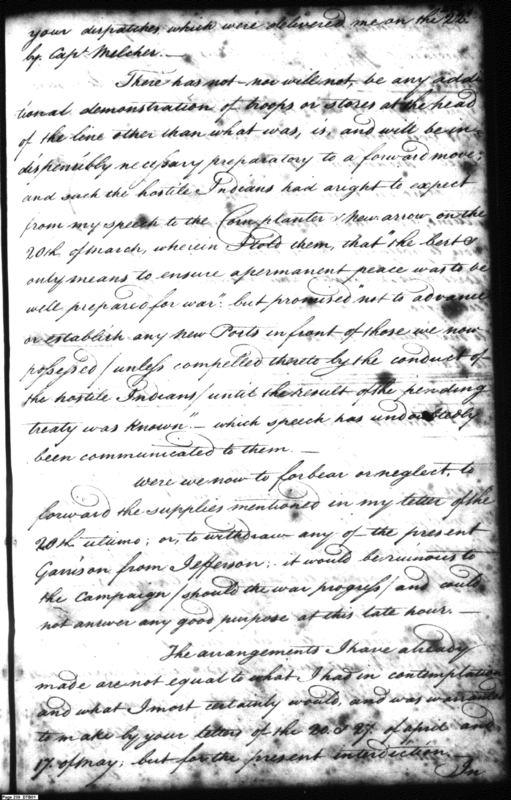 your dispatches which were delivered me on the 22d
by Capt Melcher. —
There has not - nor will not, be any addi-
tional demonstration of troops or stores at the head
of the line other than what was, is, and will be in-
dispensibly necessary preparatory to a forward move;
and such the hostile Indians had a right to expect
from my speech to the Corn planter & New arrow on the
20th of March, wherein I told them, that "the best &
only means to ensure a permanent peace was to be
well prepared for war". but promised "not to advance
or establish any new Posts in front of those we now
possessed / unless compelled thereto by the conduct of
the hostile Indians / until the result of the pending
treaty was known" - which speech has undoubtedly
been communicated to them. —
were we now to forbear or neglect, to
forward the supplies mentioned in my letter of the
20th ultimo; or, to withdraw any of the present
Garrison from Jefferson; it would be ruinous to
the Campaign / should the war progress / and could
not answer any good purpose at this late hour. —
The arrangements I have already
made are not equal to what I had in contemplation
and what I most certainly would, and was warranted
to make by your letters of the 20. & 27. of april and
17. of may; but for the present interdiction
In